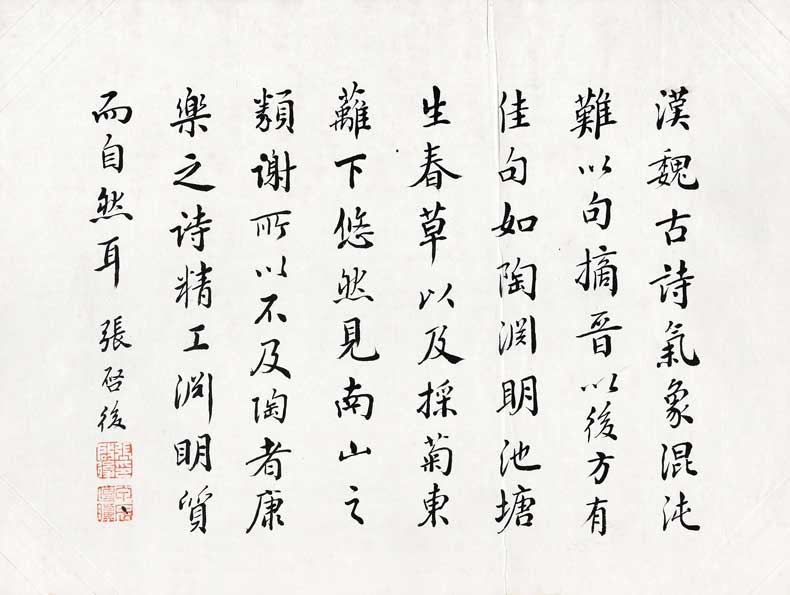 漢魏古詩氣象混沌
難以句摘晉以後方有
佳句如陶淵明池塘
生春草以及採菊東
蘺下悠然見南山之
類謝所以不及陶者康
樂之诗精工渊明質
而自然耳
張啓後